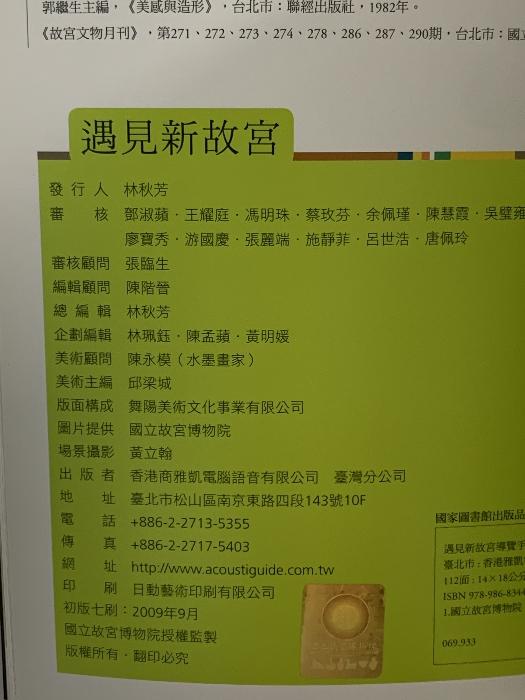 郭繼生主編，《美感與造形》，台北市：聯經出版社，1982年。
《故宮文物月刊》，第271、272、273、274、278、286、287、290期，台北市：國立
遇見新故宮
發行人 林秋芳
審核 鄧淑蘋・王耀庭・馮明珠・蔡玫芬・余佩瑾・陳慧霞・吳璧雍
廖寶秀・游國慶・張麗端・施靜菲・呂世浩・唐佩玲
審核顧問 張臨生
編輯顧問 陳階晉
總編輯 林秋芳
企劃編輯 林珮鈺・陳孟蘋・黃明媛
美術顧問 陳永模（水墨畫家）
美術主編 邱梁城
版面構成 舞陽美術文化事業有限公司
圖片提供 國立故宮博物院
場景攝影 黃立翰
出版者 香港商雅凱電腦語音有限公司 臺灣分公司
地址 臺北市松山區南京東路四段143號10F
電話 +886-2-2713-5355
傳真 +886-2-2717-5403
網址 http://www.acoustiguide.com.tw
印刷 日動藝術印刷有限公司
初版七刷：2009年9月
國立故宮博物院授權監製
版權所有・翻印必究
國家圖書館出版品
遇見新故宮導覽手
臺北市：香港雅凱
112面：14×18公分
ISBN 978-986-8344
1.國立故宮博物院
069.933